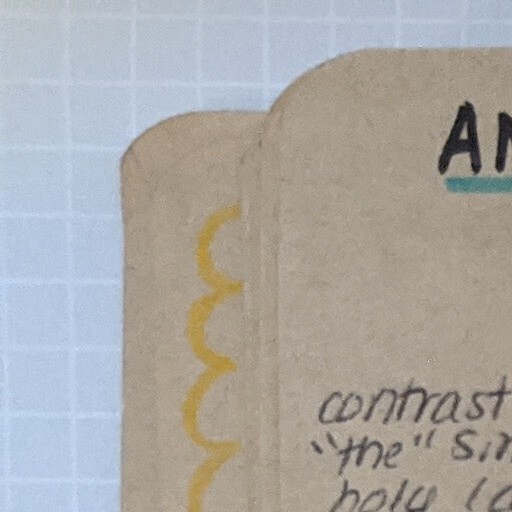 AN
contrast
"the" sin
holy